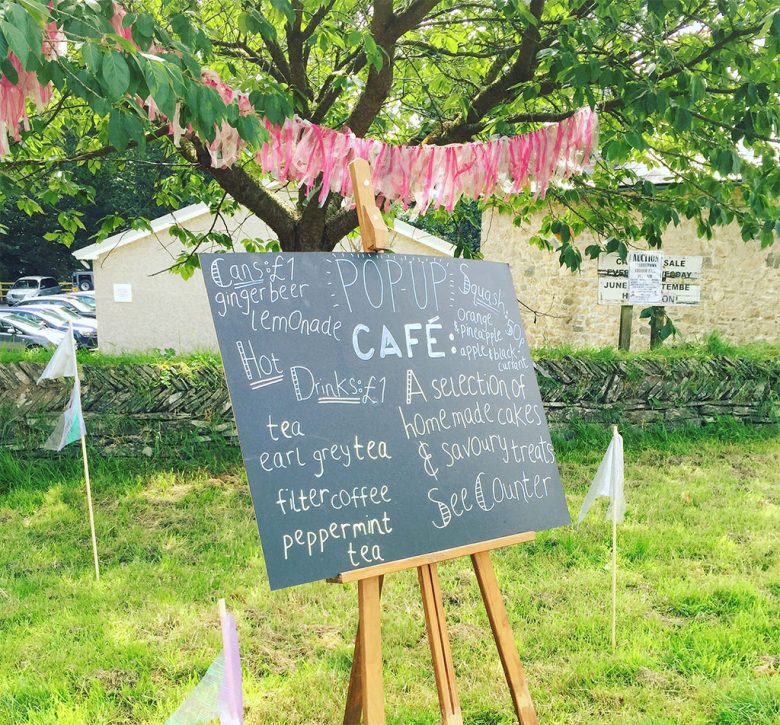 Cans: £1
ginger beer
lemonade
Hot
Drinks: £1
tea
earl grey tea
filter coffee
peppermint
tea
POP-UP
CAFÉ:
Squash: 50p
orange
& pineapple
apple & black
currant
A selection of
homemade cakes
& savoury treats
See Counter
SALE
AUCTION
EVE
DAY
JUNE
TEMBE